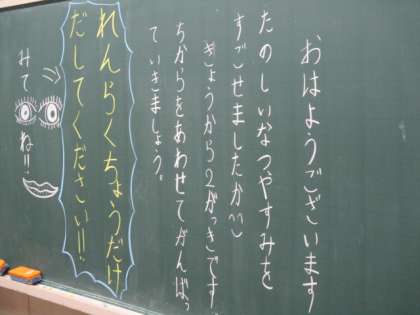 おはようございます
たのしいなつやすみを
すごせましたか^^
きょうから2がっきです。
ちからをあわせてがんばっ
ていきましょう。
れんらくちょうだけ
だしてください!!
みてね!!